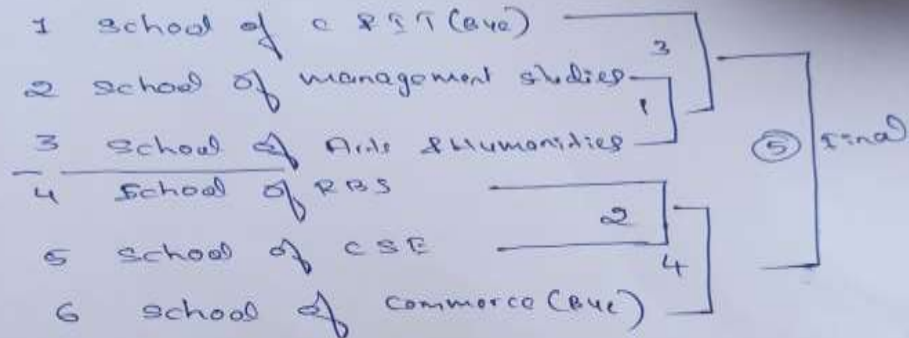 1 School of C & IT (Bye)
3
2 School of management studies
1
3 School of Arts & Humanities
5 Final
4 School of RBS
2
5 School of CSE
4
6 School of Commerce (Bye)